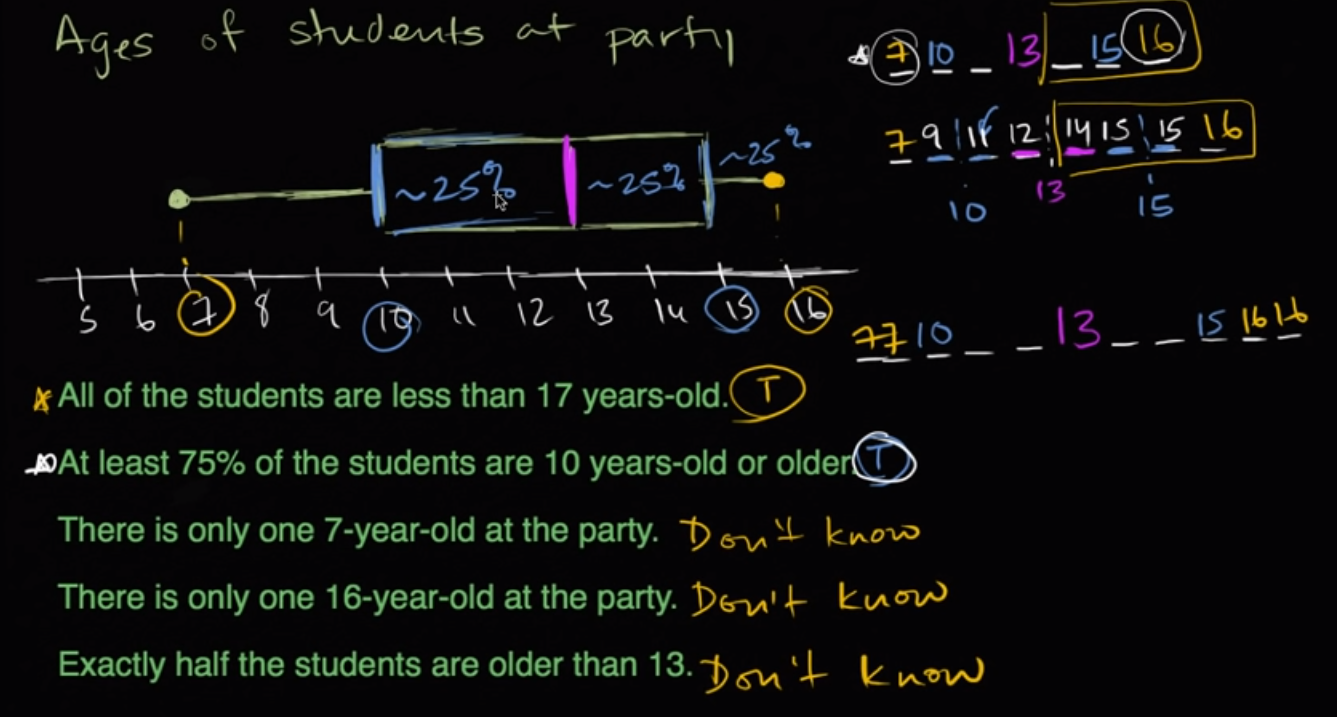 Ages of students at party
7 10 _ 13 _ 15 16
7 9 11 12 14 15 15 16
10 13 15
~25% ~25% ~25%
5 6 7 8 9 10 11 12 13 14 15 16
7 7 10 _ _ 13 _ _ 15 16 16
All of the students are less than 17 years-old. T
At least 75% of the students are 10 years-old or older T
There is only one 7-year-old at the party. Don't know
There is only one 16-year-old at the party. Don't know
Exactly half the students are older than 13. Don't know